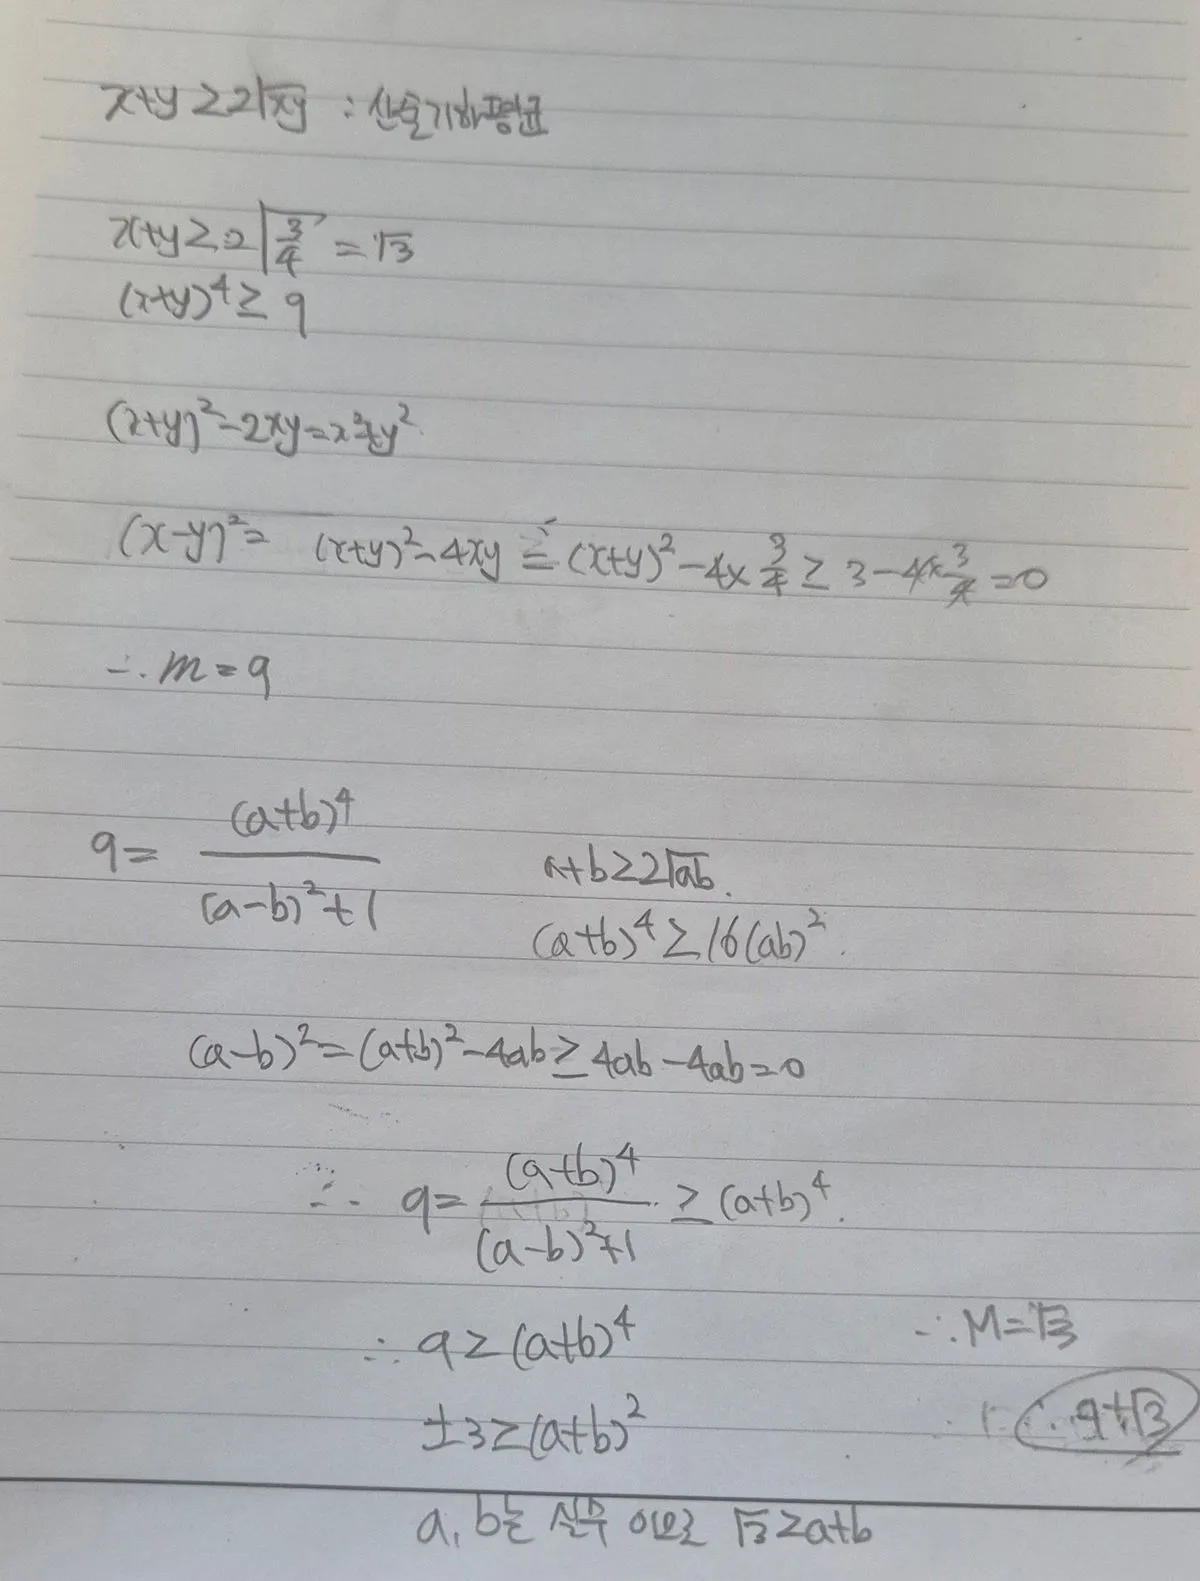 x+y≥2√xy : 산술기하평균
x+y≥2√(3/4) = √3
(x+y)⁴≥ 9
(x+y)²-2xy=x²+y²
(x-y)²= (x+y)²-4xy = (x+y)²-4×3/4 ≥ 3-4×3/4=0
∴ m=9
9= (a+b)⁴/((a-b)²+1)
a+b≥2√ab.
(a+b)⁴≥16(ab)².
(a-b)²=(a+b)²-4ab≥4ab-4ab=0
∴ 9= (a+b)⁴/((a-b)²+1) ≥(a+b)⁴.
∴ 9≥(a+b)⁴
∴M=√3
±3≥(a+b)²
∴ 9+√3
a, b는 실수 이므로 √3≥a+b